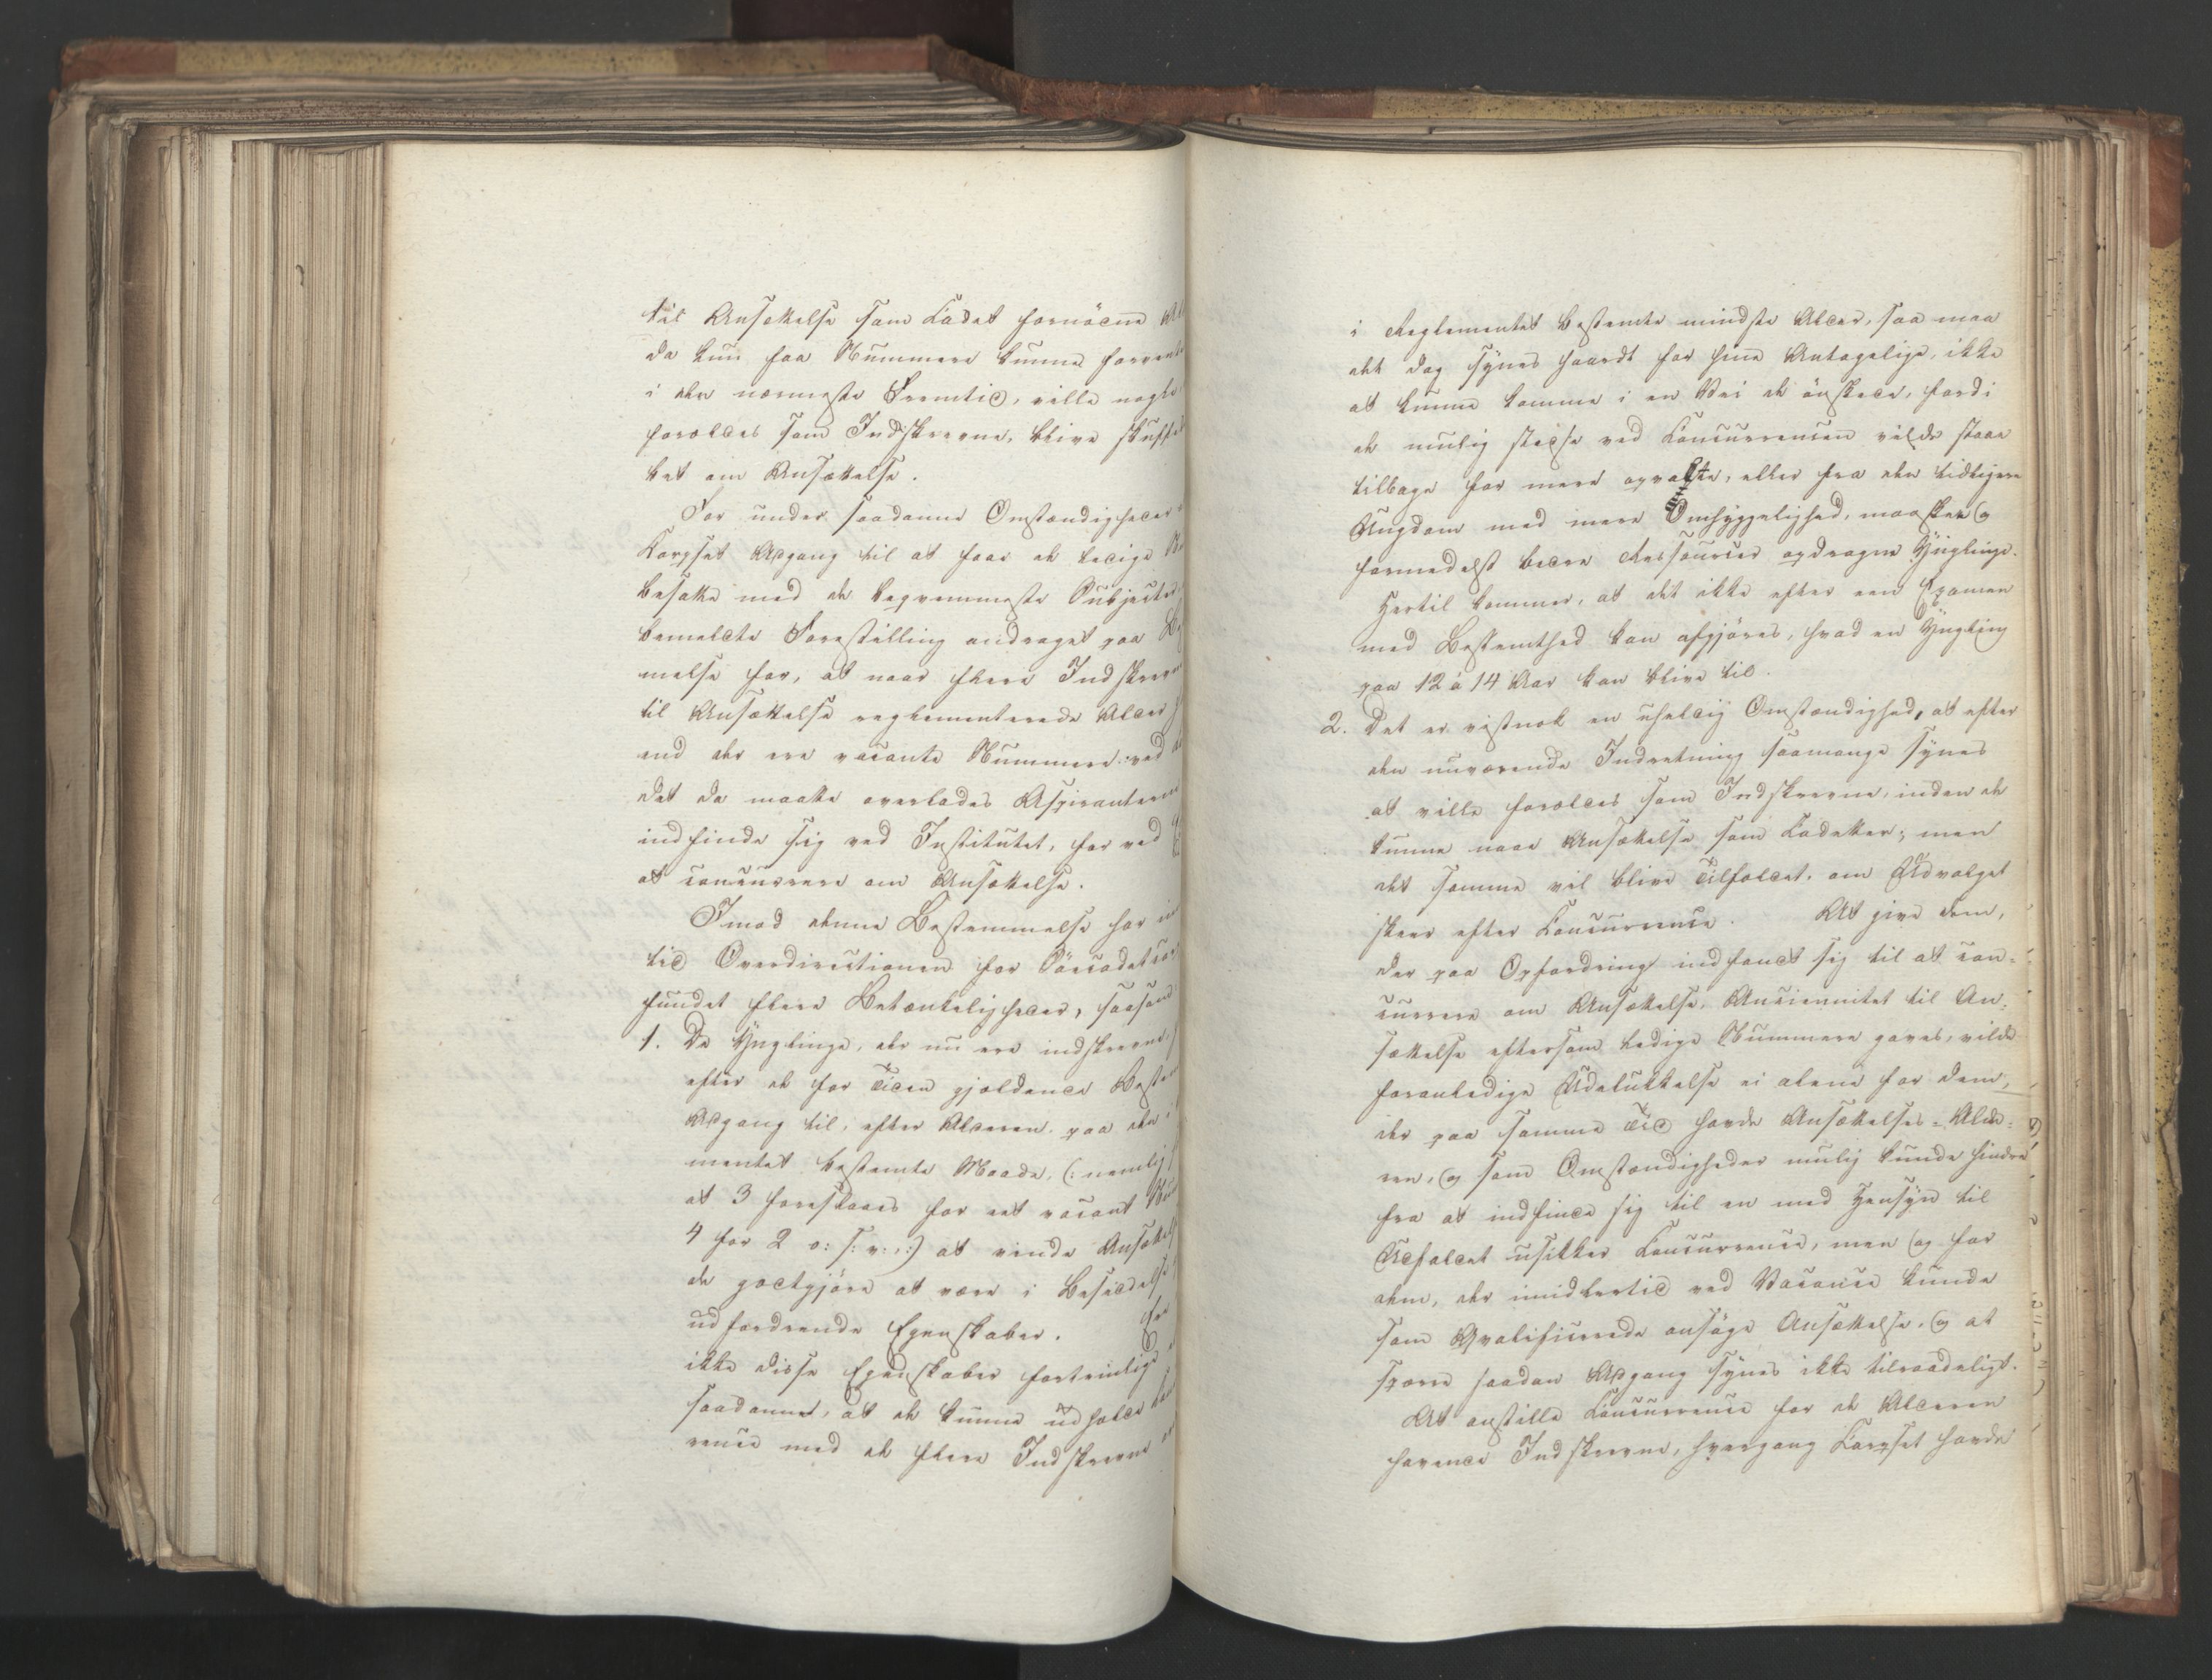 til Ansættelse som Cadet fornödne Al
da kun faa Nummere kunne forvente
i den nærmeste Fremtid, ville nogle
forældes som Indskrevne, blive skuffed
bet om Ansættelse.
For under saadanne Omstændigheder
Corpset Adgang til at faae de ledige
besatte med de beqvemmeste Subjecter
bemeldte Forestilling andraget paa
melse for, at naar flere Indskrevne
til Ansættelse reglementerede Alder
end der ere vacante Nummere: ved
det da maatte overlades Aspiranterne
indfinde sig ved Institutet, for ved
at concurrere om Ansættelse.
Imod denne Bestemmelse har
tid Overdirectionen for Söecadetcor
fundet flere Betænkeligheder, saasom
1. De Ynglinge, der nu ere indskrevne,
efter de for Tiden gjældende Bestem
Adgang til, efter Alderen, paa den i
mentet bestemte Maade, (: nemlig
at 3 foreslaaes for eet vacant Num
4 for 2 o: s: v:,:) at vinde Ansættels
de godtgjöre at være i Besiddelse
udfordrende Egenskaber. Ere
ikke disse Egenskaber fortrinlige
saadanne, at de kunne udholde
rence med de flere Indskrevne
i Reglementet bestemte mindste Alder, saa maa
det dog synes haardt for hine Antagelige, ikke
at kunne komme i en Vei de önskede, fordi
de mulig stedse ved Concurrencen vilde staae
tilbage for mere opvakte, eller fra den tidligere
Ungdom med mere Omhyggelighed, maaskee og
formedelst bedre Ressourcer opdragne Ynglinge.
Hertil kommer, at det ikke efter een Examen
med Bestemthed kan afgjöres, hvad en Yngling
paa 12 à 14 Aar kan blive til.
2. Det er vistnok en uheldig Omstændighed, at efter
den nuværende Indretning saamange synes
at ville forældes som Indskrevne, inden de
kunne naae Ansættelse som Cadetter; men
det samme vil blive Tilfældet, om Udvalget
skeer efter Concurrence. At give dem,
der paa Opfordring indfandt sig til at con-
currere om Ansættelse, Anciennitet til An-
sættelse eftersom ledige Nummere gaves, vilde
foranledige Udelukkelse ei alene for dem,
der paa samme Tid havde Ansættelses-Alde-
ren, og som Omstændigheder mulig kunde hindre
fra at indfinde sig til en med Hensyn til
Udfaldet usikker Concurrence, men og for
dem, der imidlertid ved Vacance kunde
som Qvalificerede ansöge Ansættelse, og at
sperre saadan Adgang synes ikke tilraadeligt.
At anstille Concurrence for de Alderen
havende Indskrevne, hvergang Corpset havde